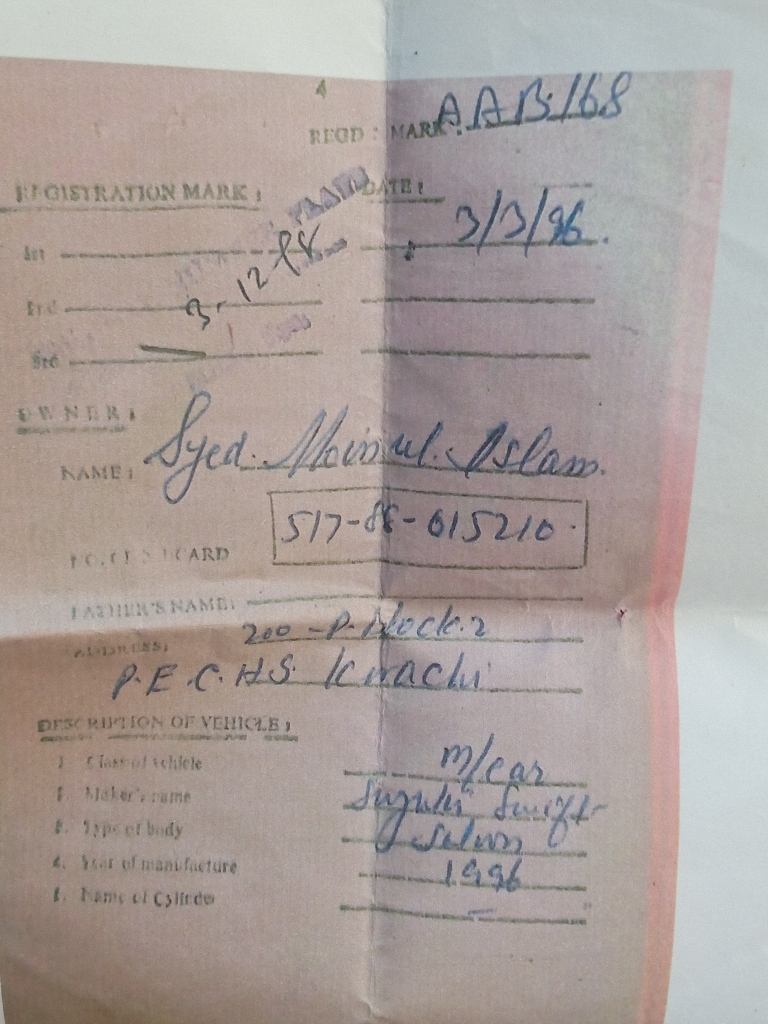 4
REGD : MARK: AAB.168
REGISTRATION MARK : DATE :
1st 3/3/96.
3-12-88
3rd
OWNER :
NAME : Syed. Moinul. Islam.
517-88-615210
CARD
FATHER'S NAME:
ADDRESS: 200-P. Block.2
P.E.C.H.S. Karachi
DESCRIPTION OF VEHICLE :
1. Class of vehicle m/car
Maker's name Suzuki Swift
Type of body Saloon
4. Year of manufacture 1996
Name of Cylinder —